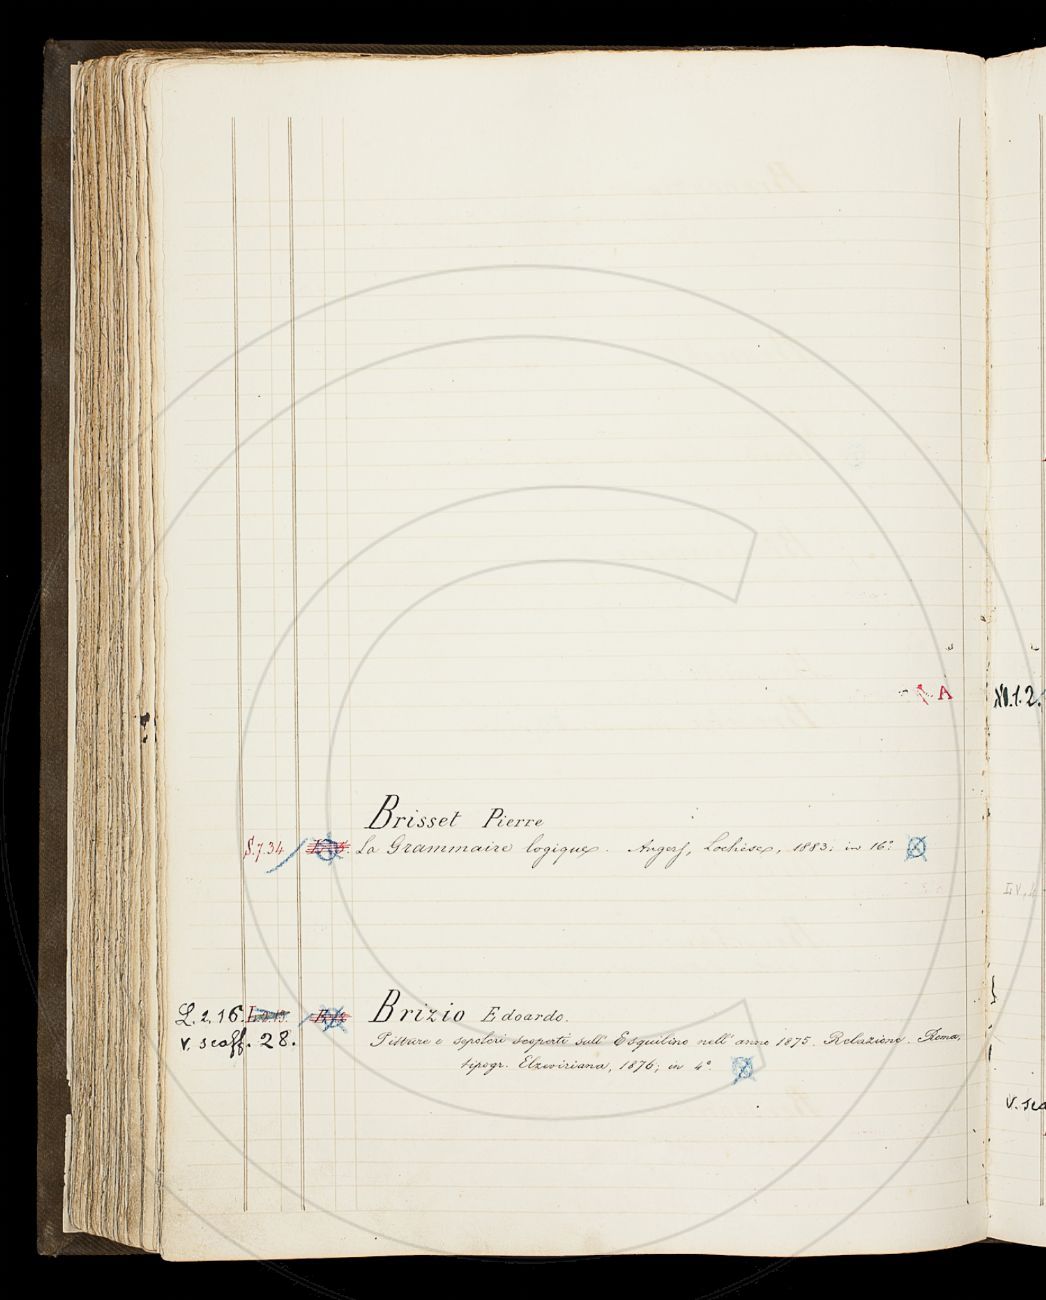 A
N.1.2.
Brisset Pierre
S.7.34 La Grammaire logique. Angers, Lachèse, 1883; in 16º
L.2.16. Brizio Edoardo.
v. scaff. 28. Pitture e sepolcri scoperti sull' Esquilino nell' anno 1875. Relazione. Roma,
tipogr. Elzeviriana, 1876; in 4º.